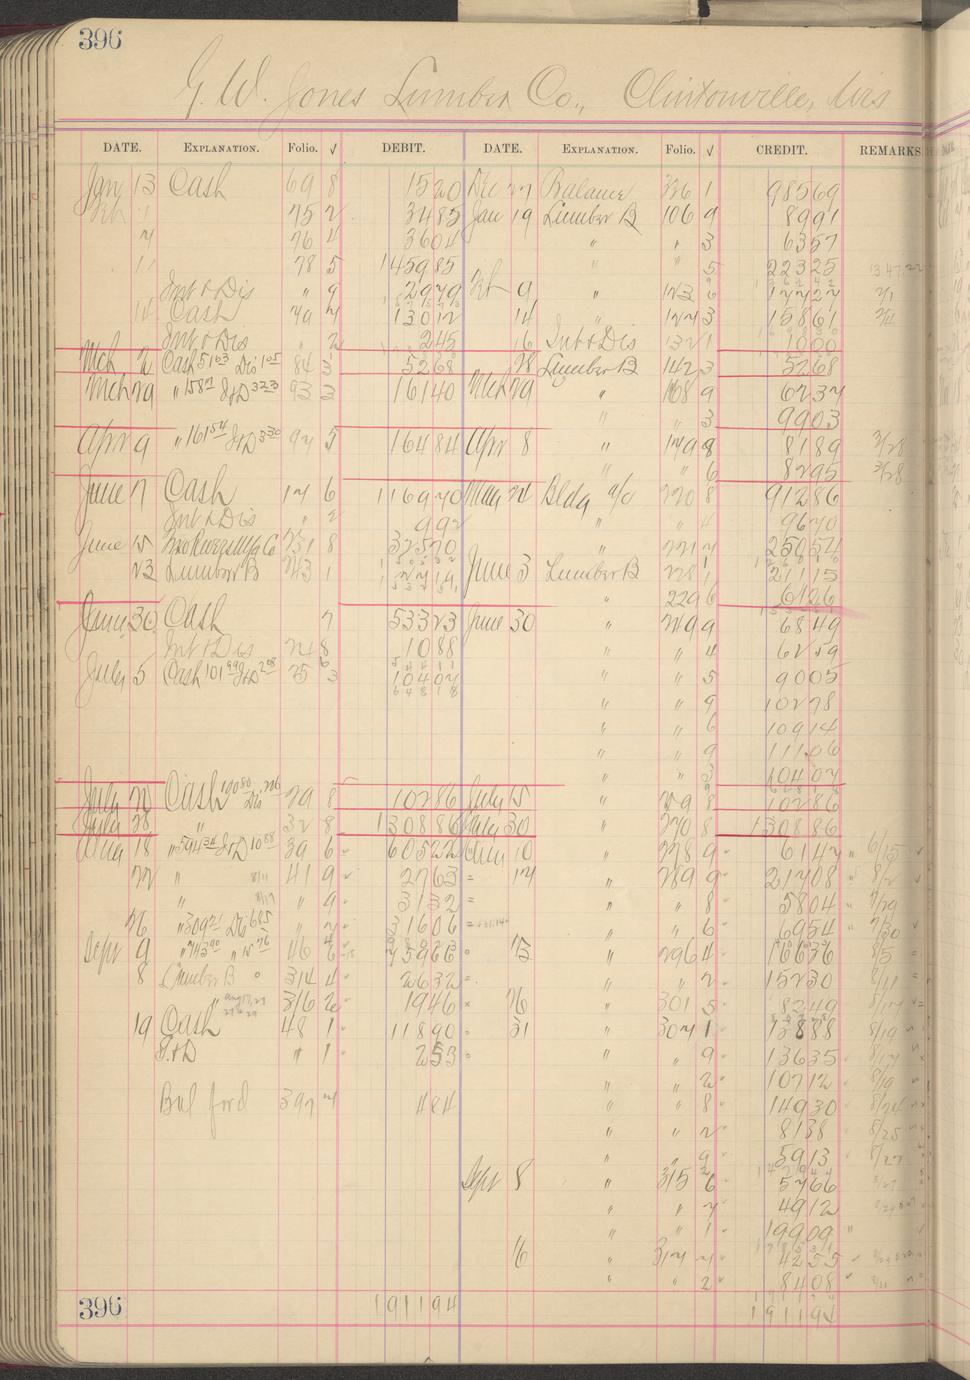 396
G. W. Jones Lumber Co., Clintonville, Wis
DATE. EXPLANATION. Folio. √ DEBIT. DATE. EXPLANATION. Folio. √ CREDIT. REMARKS
Jan 13 Cash 69 8 1520 Dec 27 Balance 336 1 98569
75 2 3485 Jan 19 Lumber B 106 9 8991
76 4 3604 " " 3 6357
78 5 145985 " " 5 22325
Int & Dis " 9 2979 Feb 9 " 123 6 17727
14 Cash 79 7 13012 14 " 127 3 15861
Int & Dis " 2 245 16 Int & Dis 132 1 1000
Mch 2 Cash 51 63 Dis 1 05 84 3 5268 28 Lumber B 142 3 5268
Mch 29 " 158 17 I&D 3 23 93 3 16140 Mch 29 " 168 9 6237
" 3 9903
Apr 9 " 161 54 I&D 3 30 97 5 16484 Apr 8 " 179 8 8189 3/28
" " 6 8295 3/28
June 7 Cash 17 6 116970 May 24 Bldg a/c 220 8 91286
Int & Dis " 2 992 " " 4 9670
June 15 Two Rivers Mfg Co 231 8 32570 " 221 7 25054
23 Lumber B 243 1 12714 June 3 Lumber B 228 1 21115
" 229 6 6126
June 30 Cash 7 53323 June 30 " 249 9 6849
Int & Dis 24 8 1088 " " 4 6259
July 5 Cash 101 99 I&D 2 08 25 3 10407 " " 5 9005
" 9 10278
" " 6 10914
" " 9 11106
" " 3 10407
July 20 Cash 100 80 Dis 2 06 29 8 10286 July 15 " 259 8 10286
July 28 " 32 8 130886 July 30 " 270 8 130886
Aug 18 " 594 34 I&D 10 88 39 6 60522 Aug 10 " 278 9 6147 6/15
22 " 8/11 41 9 2763 17 " 289 9 21708 8/2
" 8/17 " 9 3132 " " 8 5804 7/29
26 " 309 21 Dis 6 85 " 7 31606 " " 6 6954 7/30
Sept 9 " 743 90 " 15 76 46 6 75966 23 " 296 4 16636 8/5
8 Lumber B 314 4 2632 " " 2 15230 8/11
" Aug 17, 27 316 2 1946 26 " 301 5 8249 8/17
19 Cash 48 1 11890 31 " 307 1 13888 8/19
I&D " 1 253 " " 9 13635 8/17
" " 2 10712 8/19
Bal ford 397 7 484 " " 8 14930 8/24
" " 2 8138 8/25
" " 9 5913 8/27
Sept 8 " 315 6 5766
" " 7 4912
" " 1 19909
16 " 317 7 4255
" " 2 8408
396 191194 191194